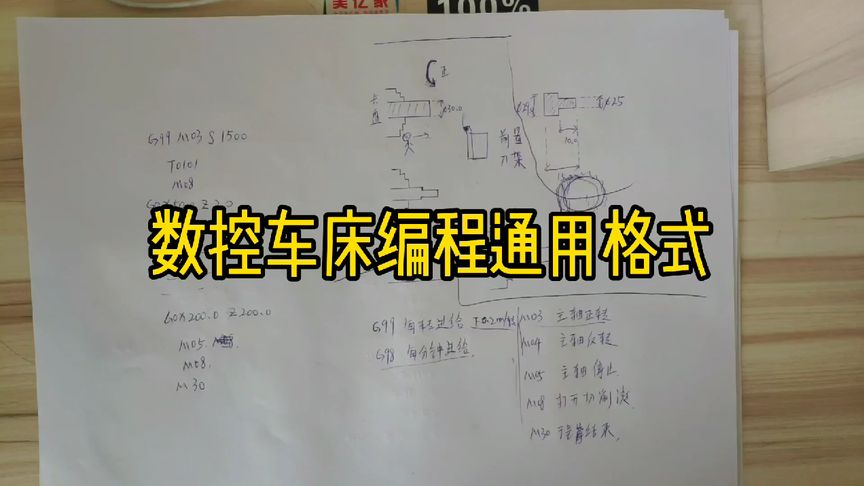 100%
正
卡盘
φ30.0
φ25
10.0
前置
刀架
G99 M03 S1500
T0101
M08
数控车床编程通用格式
G0X200.0 Z200.0
M05.
M08.
M30
G99 每转进给
G98 每分钟进给.
M03 主轴正转
M04 主轴反转
M05 主轴停止
M08 打开切削液
M30 程序结束.